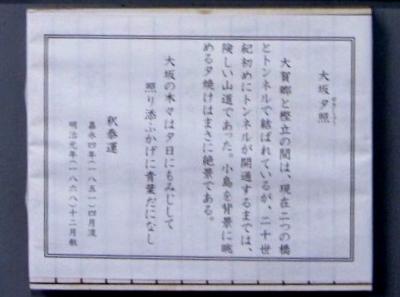 大坂夕照
せきしょう
大賀郷と樫立の間は、現在二つの橋
とトンネルで結ばれているが、二十世
紀初めにトンネルが開通するまでは、
険しい山道であった。小島を背景に眺
める夕焼けはまさに絶景である。
大坂の木々は夕日にもみじして
照り添ふかげに青葉だになし
釈泰運
嘉永四年(一八五一)四月流
明治元年(一八六八)十二月赦